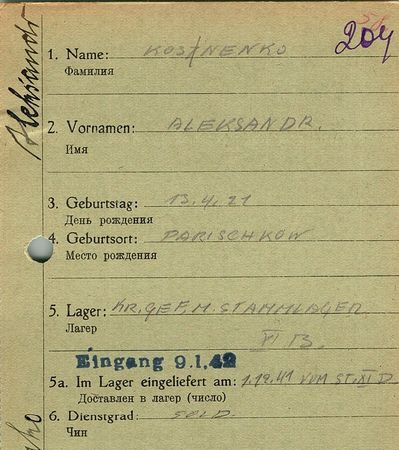 204
Aleksandr
1. Name: KOSANENKO
Фамилия
2. Vornamen: ALEKSANDR.
Имя
3. Geburtstag: 13.4.21
День рождения
4. Geburtsort: PARISCHKOW
Место рождения
5. Lager: KR.GEF.M.STAMMLAGER
Лагер
VI B.
Eingang 9.1.42
5a. Im Lager eingeliefert am: 1.12.41 VOM ST.XI D.
Доставлен в лагер (число)
6. Dienstgrad: SOLD.
Чин